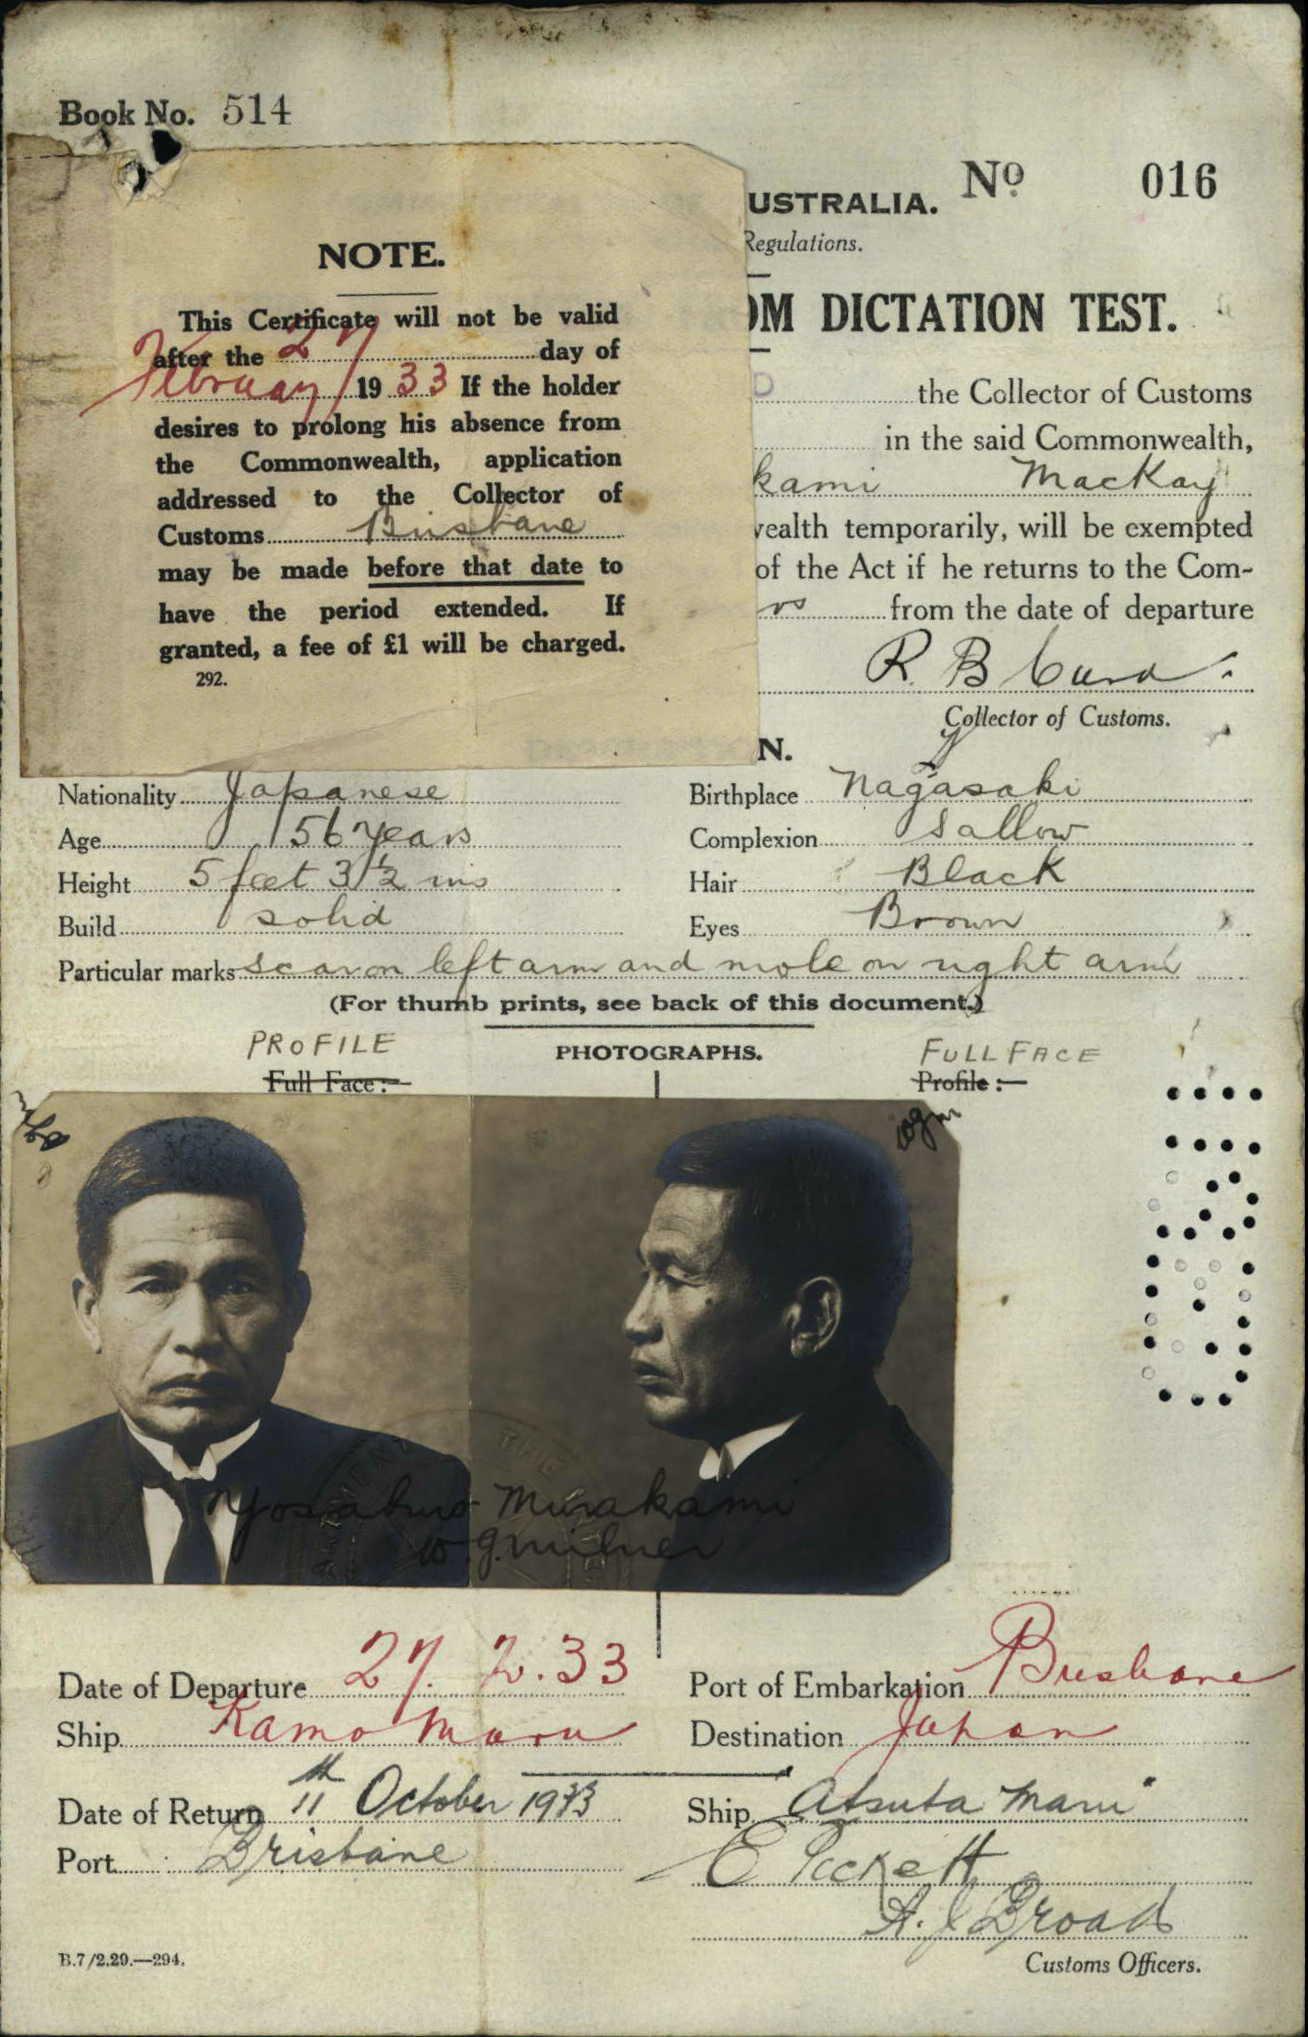 Book No. 514
No 016
USTRALIA.
Regulations.
OM DICTATION TEST.
D the Collector of Customs
in the said Commonwealth,
kami MacKay
wealth temporarily, will be exempted
of the Act if he returns to the Com-
rs from the date of departure
R B Curd
Collector of Customs.
NOTE.
This Certificate will not be valid
after the 27 day of
February 1933 If the holder
desires to prolong his absence from
the Commonwealth, application
addressed to the Collector of
Customs Brisbane
may be made before that date to
have the period extended. If
granted, a fee of £1 will be charged.
292.
N.
Nationality Japanese Birthplace Nagasaki
Age 56 years Complexion Sallow
Height 5 feet 3 1/2 ins Hair Black
Build solid Eyes Brown
Particular marks scar on left arm and mole on right arm
(For thumb prints, see back of this document.)
PHOTOGRAPHS.
PROFILE FULL FACE
Full Face:— Profile:—
Yosaburo Murakami
W. G. Milner
Date of Departure 27. 2. 33 Port of Embarkation Brisbane
Ship Kamo Maru Destination Japan
Date of Return 11th October 1933 Ship Atsuta Maru
Port Brisbane E Pickett
A. J. Broad
B.7/2.29.—294. Customs Officers.